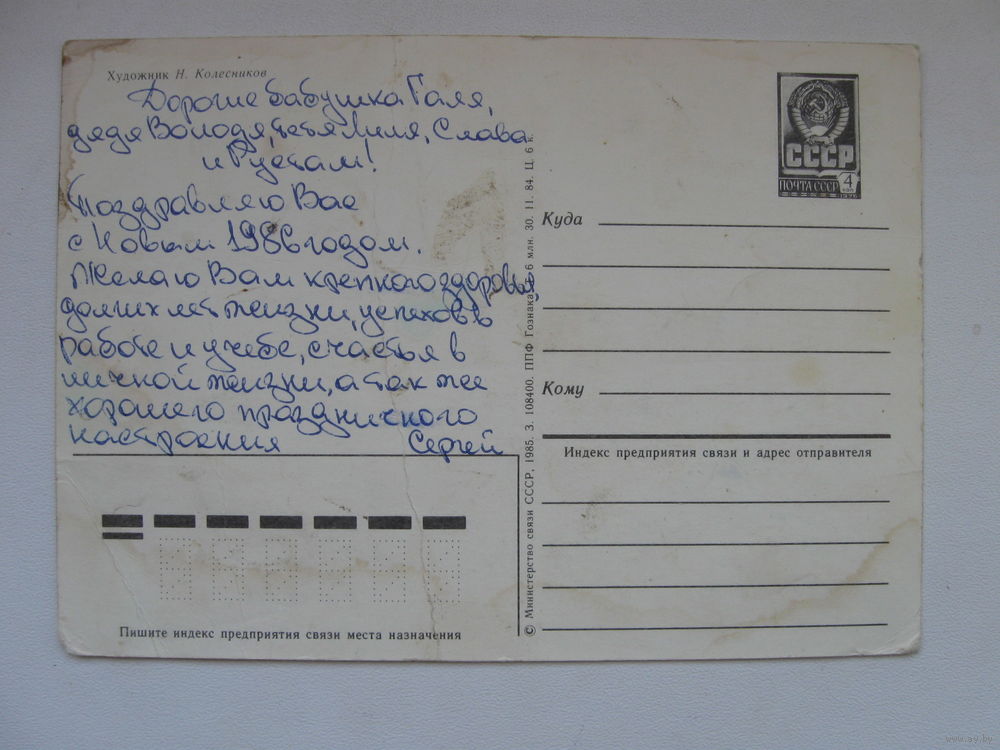 Художник Н. Колесников
Дорогие бабушка Галя,
дядя Володя, тетя Лиля, Слава
и Рустам!
Поздравляю Вас
с Новым 1986 годом.
Желаю Вам крепкого здоровья,
долгих лет жизни, успехов в
работе и учебе, счастья в
личной жизни, а так же
хорошего праздничного
настроения Сергей
Пишите индекс предприятия связи места назначения
© Министерство связи СССР, 1985. З. 108400. ППФ Гознака. 6 млн. 30. 11. 84. Ц. 6 к.
СССР
ПОЧТА СССР 4
КОП
Куда
Кому
Индекс предприятия связи и адрес отправителя
www.ay.by